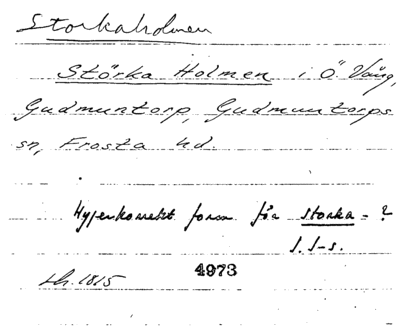 Storkaholmen
Störka Holmen i Ö. Vång,
Gudmuntorp, Gudmuntorps
sn, Frosta hd.
Hyperkorrekt form för storka - ?
S. I-s.
Lh. 1815
4973